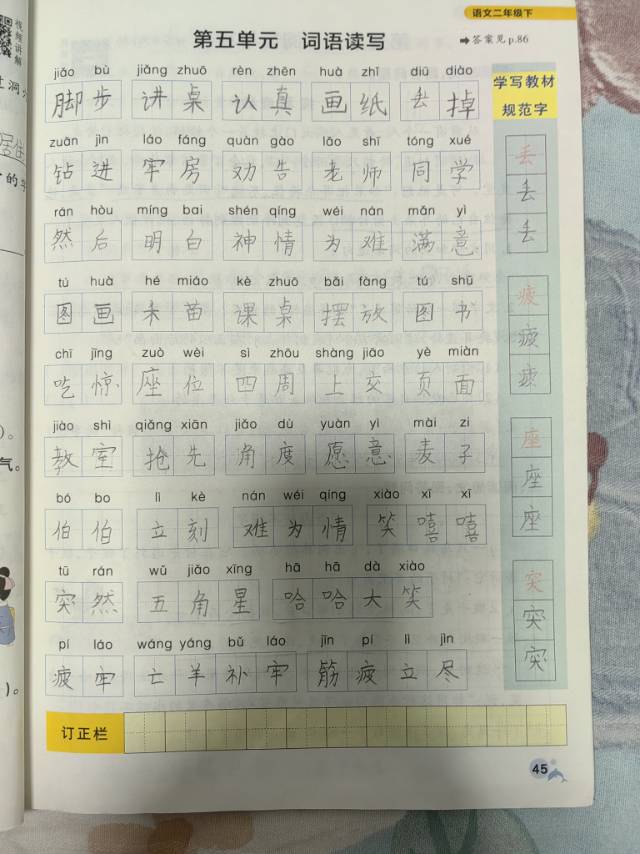 视频讲解
语文二年级下
第五单元 词语读写
➡答案见 p.86
jiǎo bù jiǎng zhuō rèn zhēn huà zhǐ diū diào
脚步 讲桌 认真 画纸 丢掉
学写教材
规范字
zuān jìn láo fáng quàn gào lǎo shī tóng xué
钻进 牢房 劝告 老师 同学
rán hòu míng bai shén qíng wéi nán mǎn yì
然后 明白 神情 为难 满意
tú huà hé miáo kè zhuō bǎi fàng tú shū
图画 禾苗 课桌 摆放 图书
chī jīng zuò wèi sì zhōu shàng jiāo yè miàn
吃惊 座位 四周 上交 页面
jiào shì qiǎng xiān jiǎo dù yuàn yì mài zi
教室 抢先 角度 愿意 麦子
bó bo lì kè nán wéi qíng xiào xī xī
伯伯 立刻 难为情 笑嘻嘻
tū rán wǔ jiǎo xīng hā hā dà xiào
突然 五角星 哈哈大笑
pí láo wáng yáng bǔ láo jīn pí lì jìn
疲牢 亡羊补牢 筋疲立尽
丢
丢
丢
疲
疲
疲
座
座
座
突
突
突
订正栏
45